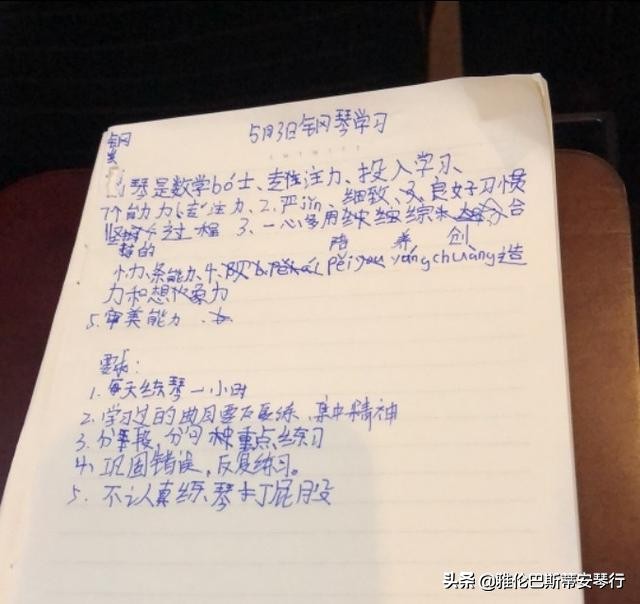 5月3日钢琴学习
钢
琴是数学bó士、专注力、投入学习、
7个能力1、专注力、2、严jǐn、细致、良好习惯
过程 3、一心多用 综合
陪养创
的
协力、条能力、4、péi yǎng chuàng造
力和想象力
5、审美能力
要求:
1、每天练琴一小时
2、学习过的曲目要反复练、集中精神
3、分手段,分句 重点练习
4、巩固错误,反复练习。
5、不认真练琴打屁股
头条 @雅伦巴斯蒂安琴行